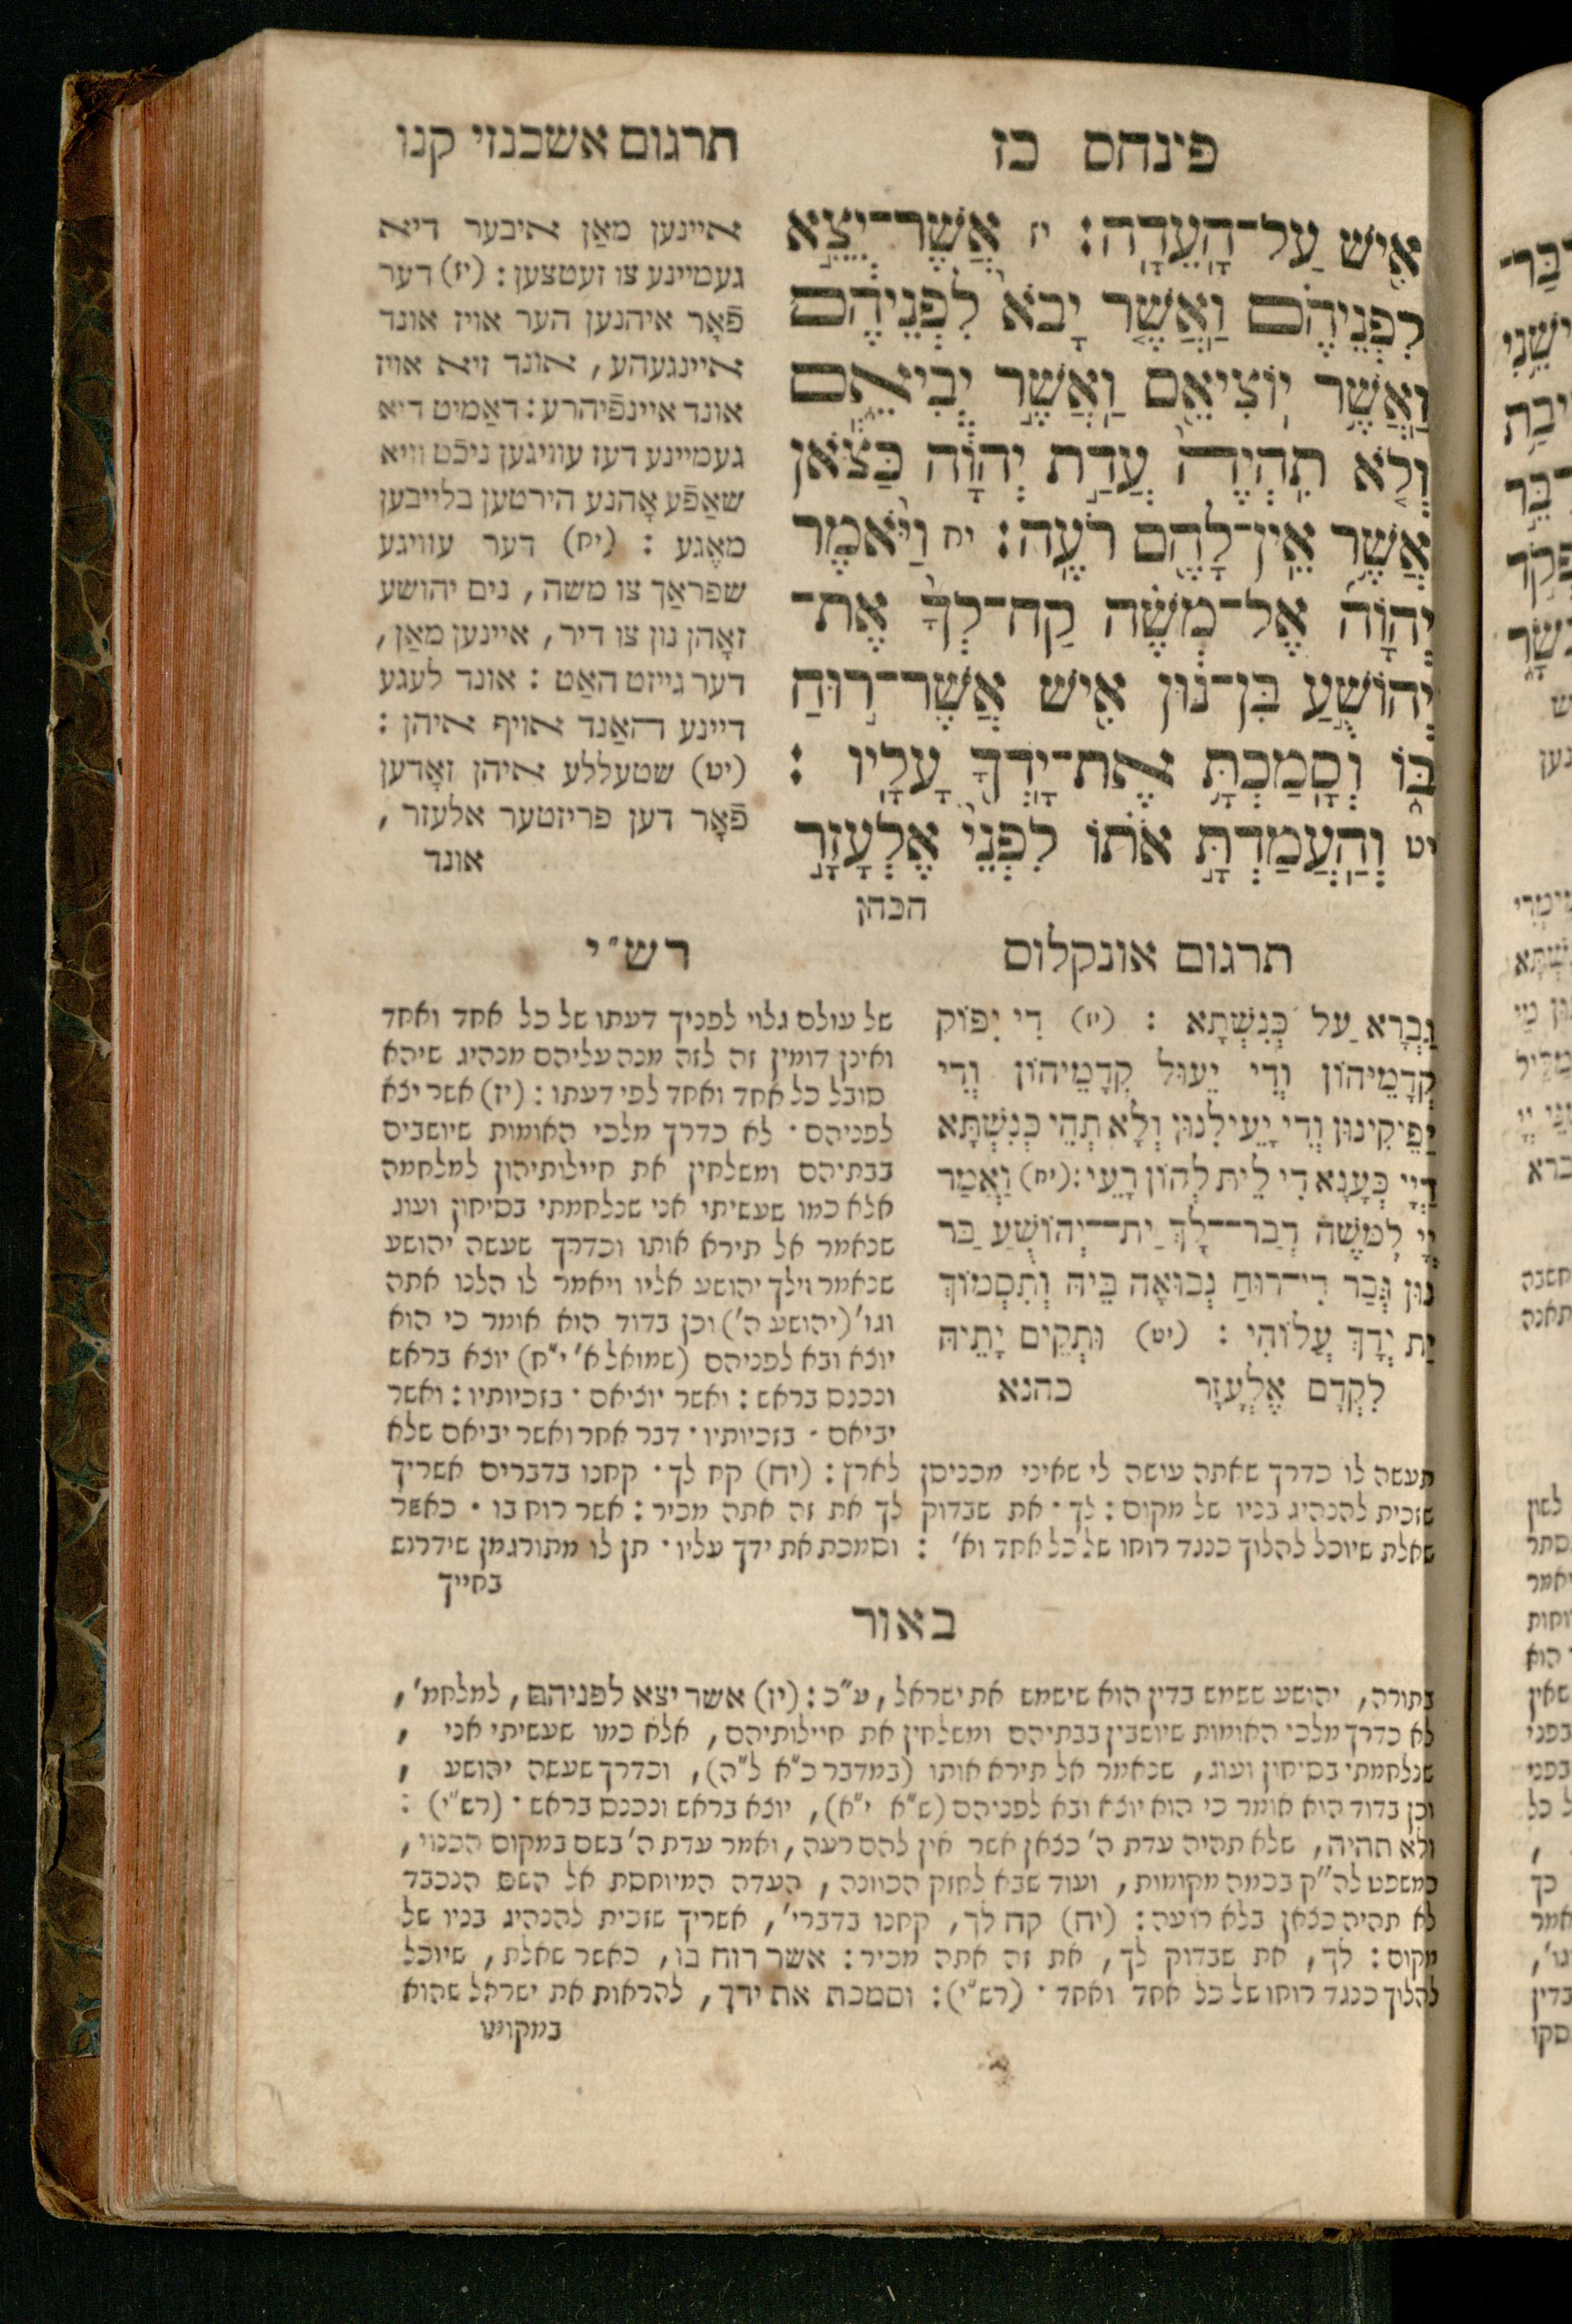 פינחס כז
אִ֖ישׁ עַל־הָעֵדָֽה׃ יז אֲשֶׁר־יֵצֵ֣א
לִפְנֵיהֶ֗ם וַאֲשֶׁ֤ר יָבֹא֙ לִפְנֵיהֶ֔ם
וַאֲשֶׁ֥ר יוֹצִיאֵ֖ם וַאֲשֶׁ֣ר יְבִיאֵ֑ם
וְלֹ֤א תִהְיֶה֙ עֲדַ֣ת יְהוָ֔ה כַּצֹּ֕אן
אֲשֶׁ֥ר אֵין־לָהֶ֖ם רֹעֶֽה׃ יח וַיֹּ֨אמֶר
יְהוָ֜ה אֶל־מֹשֶׁ֗ה קַח־לְךָ֙ אֶת־
יְהוֹשֻׁ֣עַ בִּן־נ֔וּן אִ֖ישׁ אֲשֶׁר־ר֣וּחַ
בּ֑וֹ וְסָמַכְתָּ֥ אֶת־יָדְךָ֖ עָלָֽיו׃
יט וְהַֽעֲמַדְתָּ֣ אֹת֗וֹ לִפְנֵי֙ אֶלְעָזָ֣ר
הכהן
תרגום אשכנזי קנו
איינען מאַן איבער דיא
געמיינע צו זעטצען : (יז) דער
פֿאָר איהנען הער אויז אונד
איינגעהע, אונד זיא אויז
אונד איינפֿיהרע: דאַמיט דיא
געמיינע דעז עוויגען ניכֿט וויא
שאַפֿע אָהנע הירטען בלייבען
מאֶגע : (יח) דער עוויגע
שפראַך צו משה, נים יהושע
זאָהן נון צו דיר, איינען מאַן,
דער גייזט האַט : אונד לעגע
דיינע האַנד אויף איהן :
(יט) שטעללע איהן זאָדען
פֿאָר דען פריזטער אלעזר,
אונד
תרגום אונקלוס
גַּבְרָא עַל כְּנִשְׁתָּא : (יז) דִּי יִפּוֹק
קְדָמֵיהוֹן וְדִי יֵעוּל קְדָמֵיהוֹן וְדִי
יַפֵּיקִינוּן וְדִי יָעֵילִנוּן וְלָא תְהֵי כְּנִשְׁתָּא
דַּיְיָ כְּעָנָא דִּי לֵית לְהוֹן רָעֵי: (יח) וַאֲמַר
יְיָ לְמֹשֶׁה דְּבַר־לָךְ יַת־יְהוֹשֻׁעַ בַּר
נוּן גְּבַר דִּי־רוּחַ נְבוּאָה בֵּיהּ וְתִסְמוֹךְ
יַת יְדָךְ עֲלוֹהִי : (יט) וּתְקֵים יָתֵיהּ
לִקְדָם אֶלְעָזָר כהנא
רש״י
של עולם גלוי לפניך דעתו של כל אחד ואחד
ואינן דומין זה לזה מנה עליהם מנהיג שיהא
סובל כל אחד ואחד לפי דעתו : (יז) אשר יצא
לפניהם · לא כדרך מלכי האומות שיושבים
בבתיהם ומשלחין את חיילותיהון למלחמה
אלא כמו שעשיתי אני שנלחמתי בסיחון ועוג
שנאמר אל תירא אותו וכדרך שעשה יהושע
שנאמר וילך יהושע אליו ויאמר לו הלנו אתה
וגו' (יהושע ה') וכן בדוד הוא אומר כי הוא
יוצא ובא לפניהם (שמואל א' י״ח) יוצא בראש
ונכנס בראש : ואשר יוציאם · בזכיותיו : ואשר
יביאם · בזכיותיו · דבר אחר ואשר יביאם שלא
תעשה לו כדרך שאתה עושה לי שאיני מכניסן לארץ : (יח) קח לך · קחנו בדברים אשריך
שזכית להנהיג בניו של מקום : לך · את שבדוק לך את זה אתה מכיר : אשר רוח בו · כאשר
שאלת שיוכל להלוך כנגד רוחו של כל אחד וא' : וסמכת את ידך עליו · תן לו מתורגמן שידרוש
בחייך
באור
בתורה, יהושע ששמש בדין הוא שישמש את ישראל, ע״כ : (יז) אשר יצא לפניהם, למלחמ',
לא כדרך מלכי האומות שיושבין בבתיהם ומשלחין את חיילותיהם, אלא כמו שעשיתי אני ,
שנלחמתי בסיחון ועוג, שנאמר אל תירא אותו (במדבר כ״א ל״ה), וכדרך שעשה יהושע ,
וכן בדוד הוא אומר כי הוא יוצא ובא לפניהם (ש״א י״א), יוצא בראש ונכנס בראש · (רש״י) :
ולא תהיה, שלא תהיה עדת ה' כצאן אשר אין להם רעה, ואמר עדת ה' בשם במקום הכנוי,
כמשפט לה״ק בכמה מקומות, ועוד שבא לחזק הכוונה, העדה המיוחסת אל השם הנכבד
לא תהיה כצאן בלא רועה : (יח) קח לך, קחנו בדברי', אשריך שזכית להנהיג בניו של
מקום : לך, את שבדוק לך, את זה אתה מכיר : אשר רוח בו, כאשר שאלת, שיוכל
להלוך כנגד רוחו של כל אחד ואחד · (רש״י) : וסמכת את ידך, להראות את ישראל שהוא
במקומ